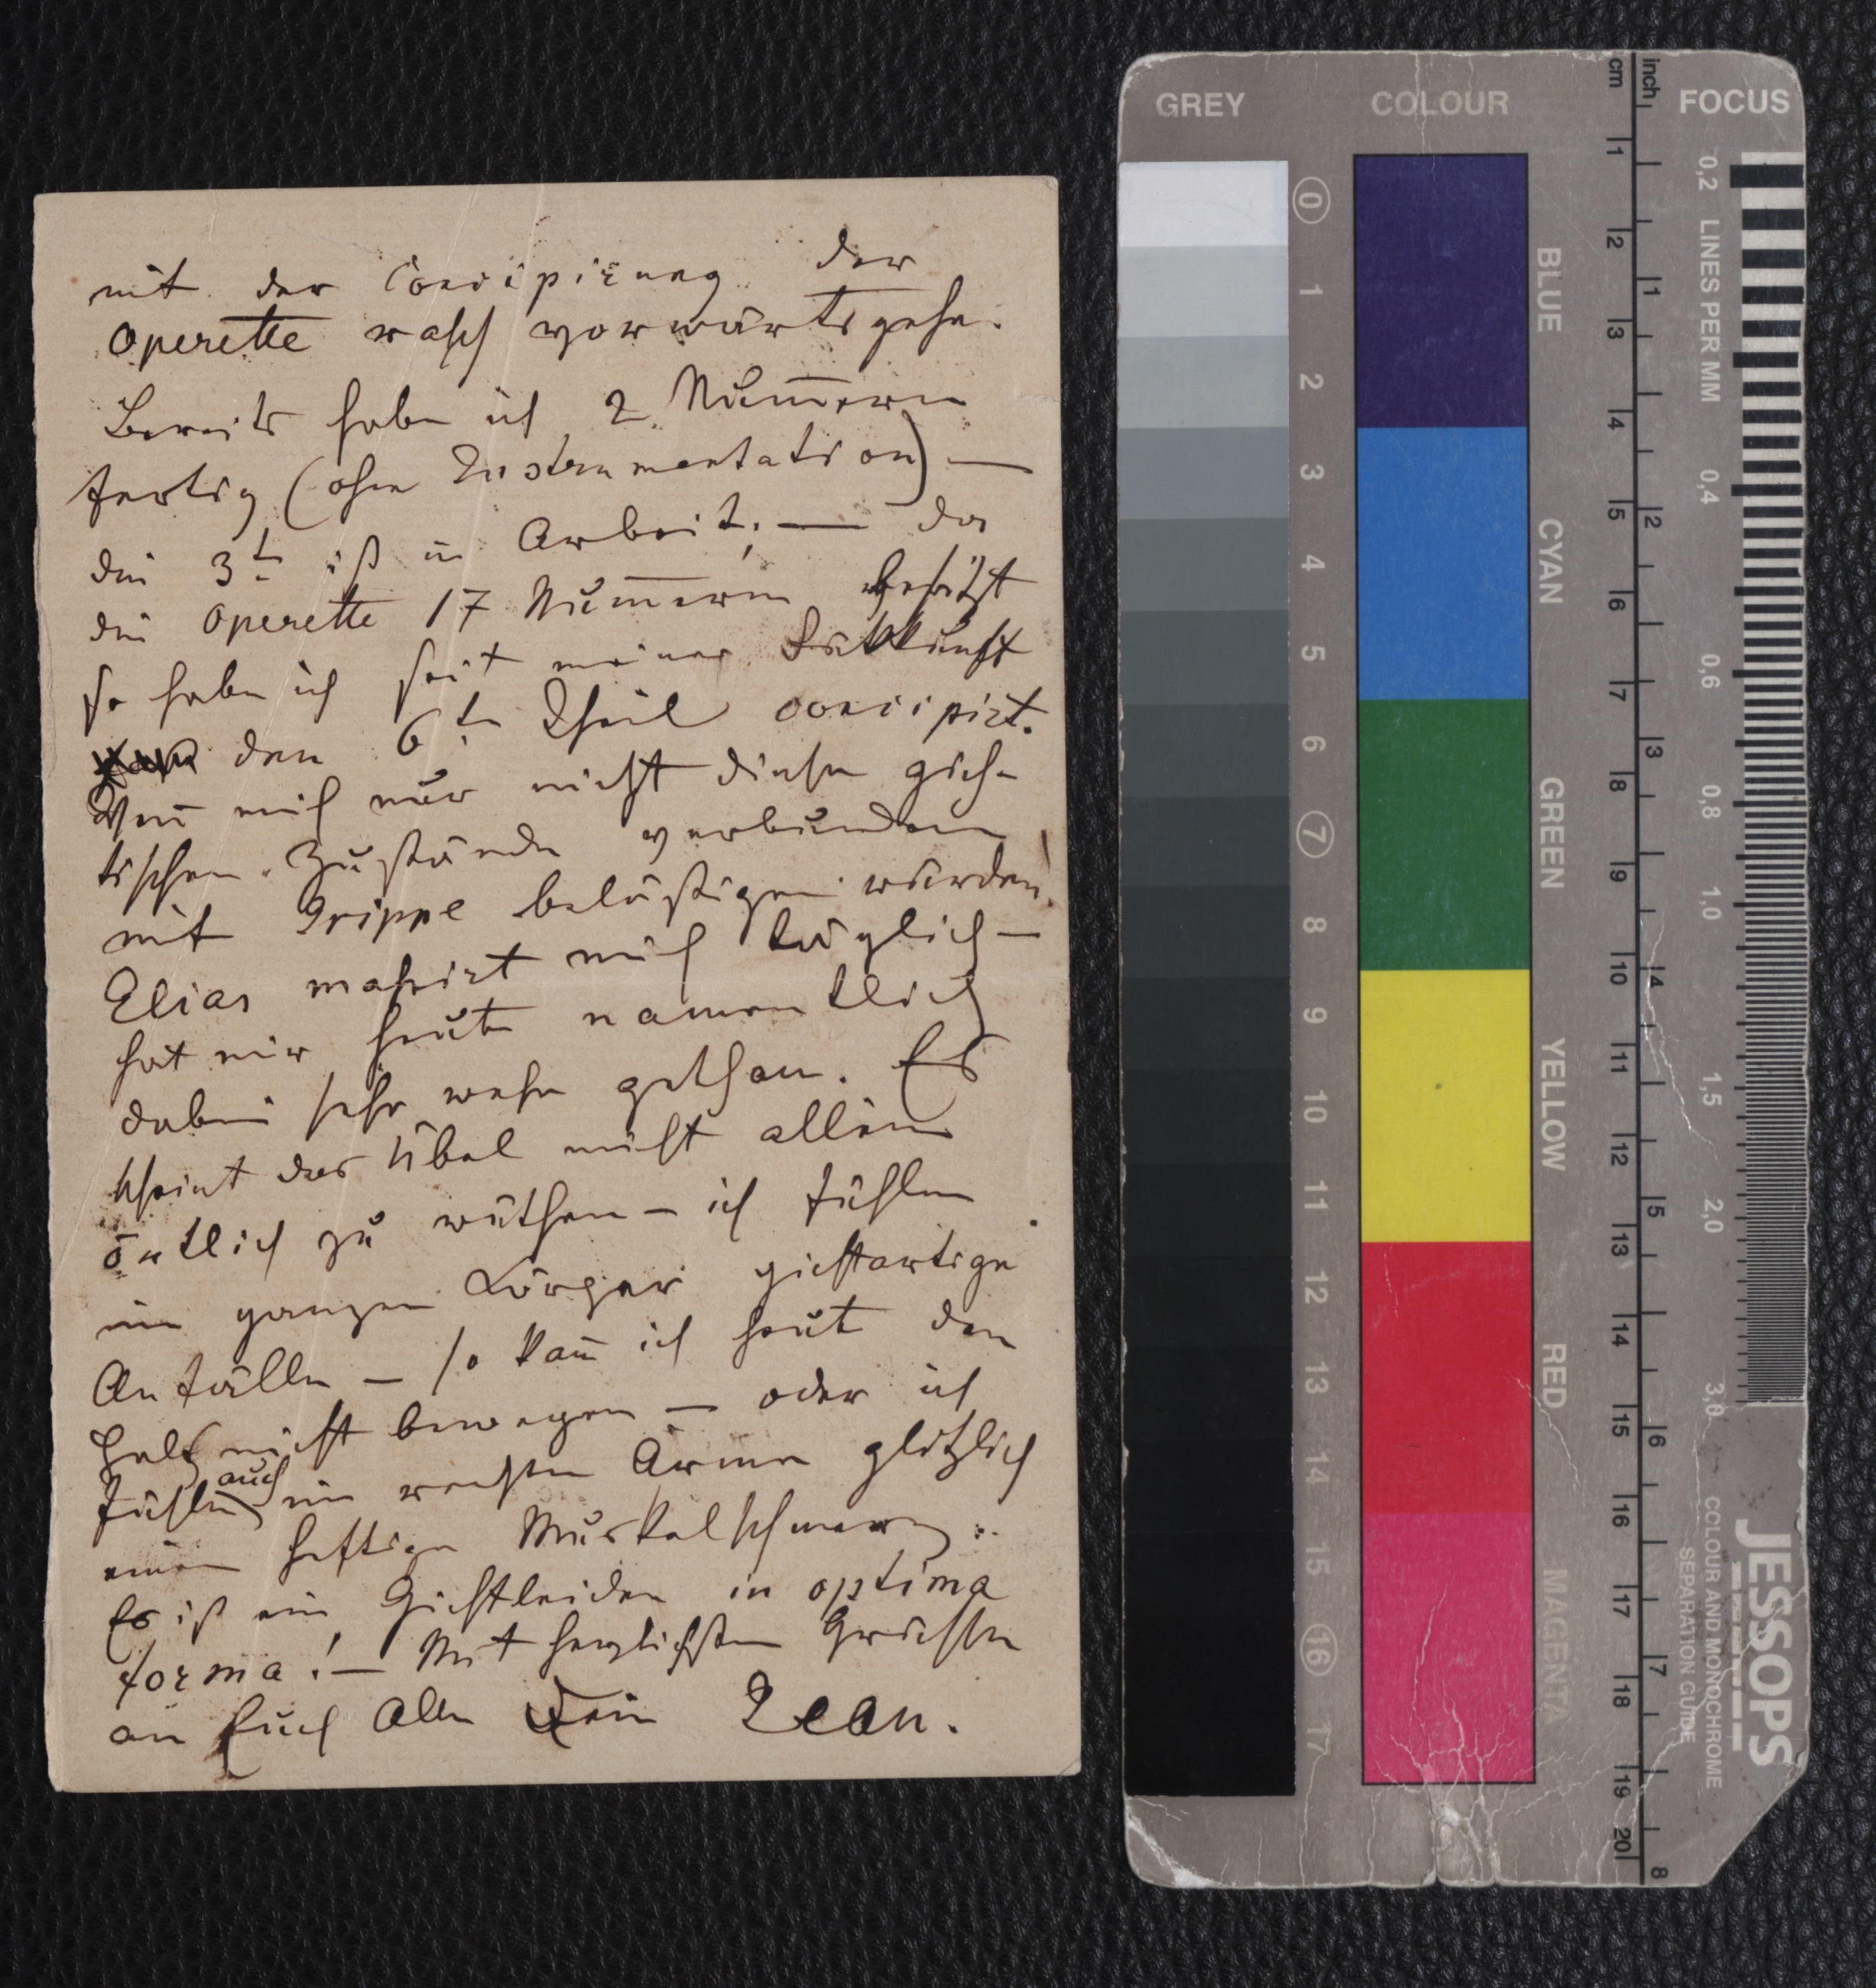 mit der Concipirung der
Operette rasch vorwärts gehe.
Bereits habe ich 2 Num̄ern
fertig (ohne Instrumentation) —
die 3t ist in Arbeit; — da
die Operette 17 Num̄ern besitzt
so habe ich seit meiner
den 6ten Theil concipirt.
Wen̄ mich nur nicht diese gich-
tischen Zustände verbunden
mit Grippe belästigen würden!
Elias massirt mich täglich —
hat mir heute namentlich
dabei sehr wehe gethan. Es
scheint das Übel nicht allein
örtlich zu wüthen — ich fühle
im ganzen Körper gichtartige
Anfälle — so kan̄ ich heut den
Hals nicht bewegen — oder ich
fühle auch im rechten Arme plötzlich
einen heftigen Muskelschmerz.
Es ist ein Gichtleiden in optima
forma! — Mit herzlichsten Grüssen
an Euch Alle Dein Jean.
GREY
COLOUR
FOCUS
0
1
2
3
4
5
6
7
8
9
10
11
12
13
14
15
16
17
BLUE
CYAN
GREEN
YELLOW
RED
MAGENTA
cm
1
2
3
4
5
6
7
8
9
10
11
12
13
14
15
16
17
18
19
20
inch
1
2
3
4
5
6
7
8
LINES PER MM
0,2
0,4
0,6
0,8
1,0
1,5
2,0
3,0
JESSOPS
COLOUR AND MONOCHROME
SEPARATION GUIDE